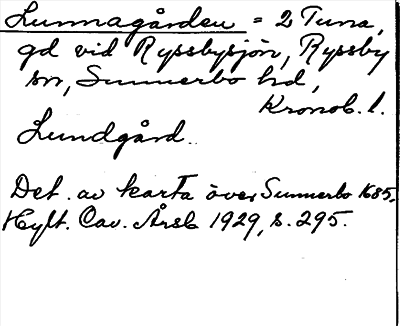 Lunnagården = 2 Tuna,
gd vid Ryssbysjön, Ryssby
sn, Sunnerbo hd,
Kronob. l.
Lundgård.
Det. av karta över Sunnerbo 1685.
Hylt. Cav. Årsb 1929, s. 295.